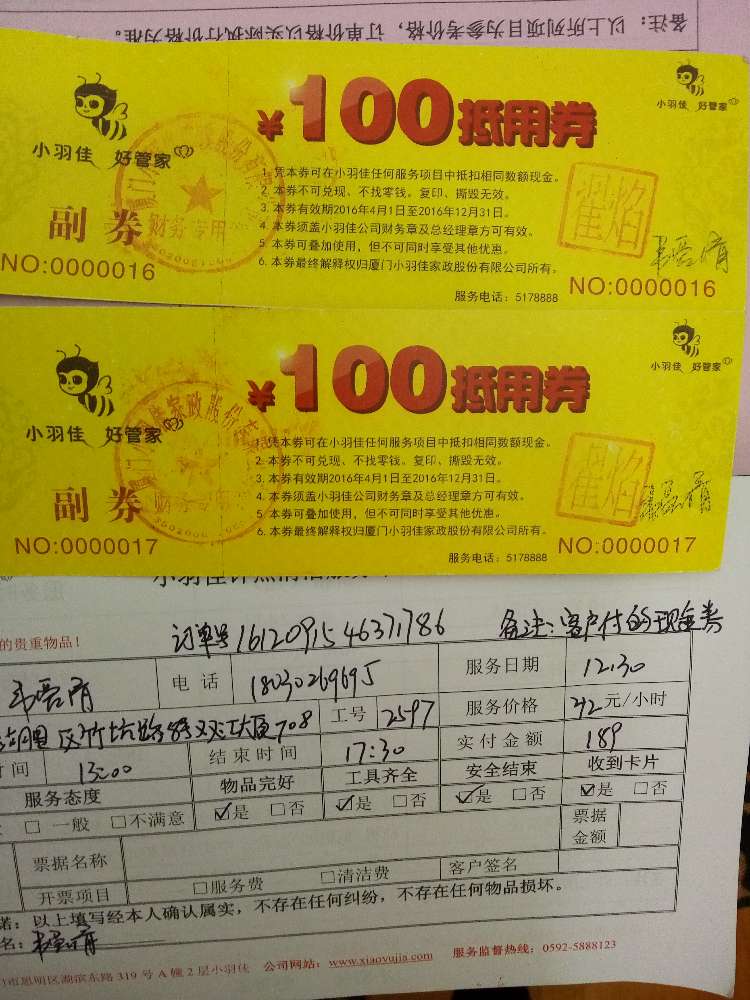 备注：以上所列项目为参考价格，订单价格以实际执行价格为准。
小羽佳 好管家
副 券
财务专用
NO:0000016
100抵用券
小羽佳 好管家
1. 凭本券可在小羽佳任何服务项目中抵扣相同数额现金。
2. 本券不可兑现、不找零钱。复印、撕毁无效。
3. 本券有效期2016年4月1日至2016年12月31日。
4. 本券须盖小羽佳公司财务章及总经理章方可有效。
5. 本券可叠加使用，但不可同时享受其他优惠。
6. 本券最终解释权归厦门小羽佳家政股份有限公司所有。
服务电话：5178888
NO:0000016
小羽佳 好管家
副 券
NO:0000017
100抵用券
小羽佳 好管家
1. 凭本券可在小羽佳任何服务项目中抵扣相同数额现金。
2. 本券不可兑现、不找零钱。复印、撕毁无效。
3. 本券有效期2016年4月1日至2016年12月31日。
4. 本券须盖小羽佳公司财务章及总经理章方可有效。
5. 本券可叠加使用，但不可同时享受其他优惠。
6. 本券最终解释权归厦门小羽佳家政股份有限公司所有。
服务电话：5178888
NO:0000017
的贵重物品！
订单号1612091546371786 备注：客户付的现金券
电话 18030269695 服务日期 12.30
708 工号 2597 服务价格 42 元/小时
时间 13:00 结束时间 17:30 实付金额 189
服务态度 物品完好 工具齐全 安全结束 收到卡片
□ 一般 □不满意 ☑是 □否 ☑是 □否 ☑是 □否 ☑是 □否
票据名称 票据金额
开票项目 □服务费 □清洁费 客户签名
诺：以上填写经本人确认属实，不存在任何纠纷，不存在任何物品损坏。
名：
门市思明区湖滨东路 319 号 A 幢 2 层小羽佳 公司网站：www.xiaoyujia.com 服务监督热线：0592-5888123